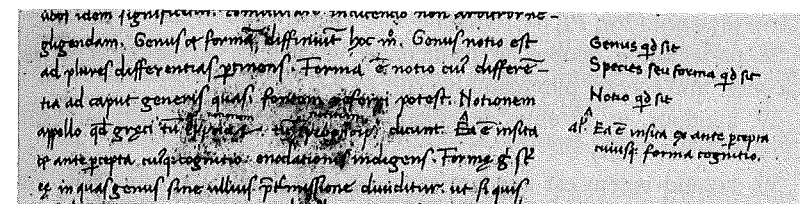 gligendam. Genus & formā, diffiniūt hoc mº. Genus notio est
ad plures differentias ptinens. Forma ē notio cuiꝰ differē-
tia ad caput generis quasi fontem referri potest. Notionem
appello qđ gręci tū tū dicunt. Ea ē insita
& ante pcepta cuiusq; cognitio enodationis indigens. Formę gͥ st̄
eę in quas genus sine ullius p̄t̄missione diuiditur. ut si quis
Genus qđ sit
Species seu forma qđ sit
Notio qđ sit
al'. Ea ē insita & ante pcepta
cuiusq; forma cognitio.